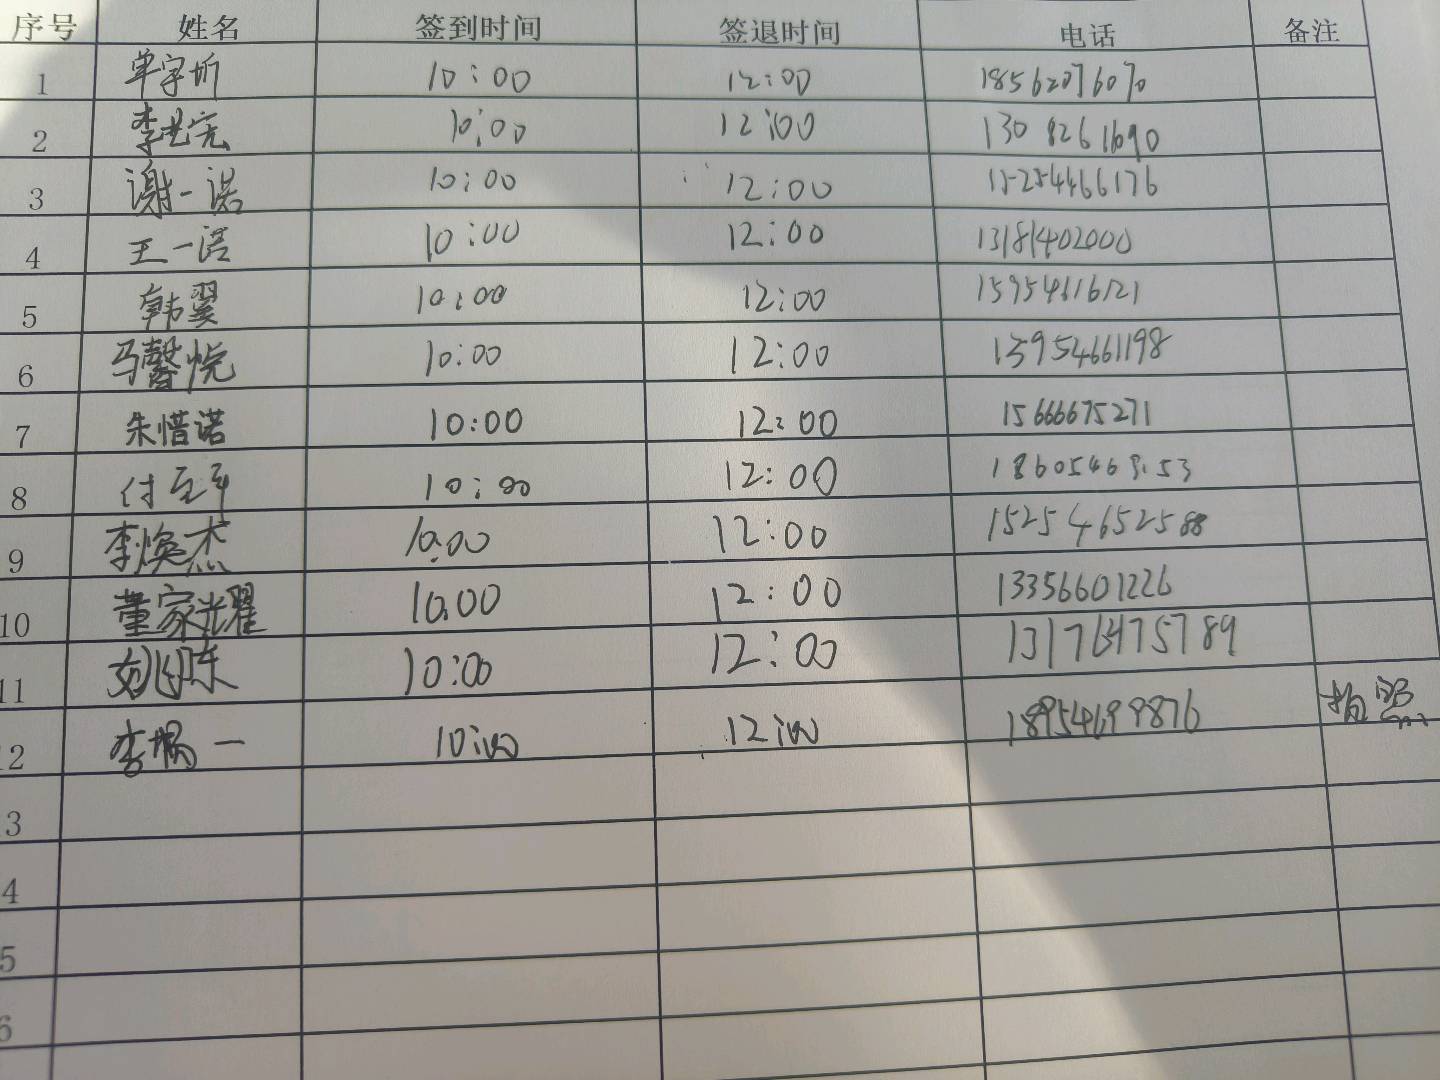 序号 姓名 签到时间 签退时间 电话 备注
1 单宇昕 10:00 12:00 18562076070
2 李艺宪 10:00 12:00
3 谢一诺 10:00 12:00 15254466176
4 王一诺 10:00 12:00 13181402000
5 韩翼 10:00 12:00 15954616121
6 马馨悦 10:00 12:00 13954661198
7 朱惜诺 10:00 12:00 15666675271
8 10:00 12:00
9 李焕杰 10:00 12:00 15254652588
10 董家光耀 10:00 12:00 13356601226
11 10:00 12:00
12 一 10:00 12:00 18954699876 拍照
3
4
5
6